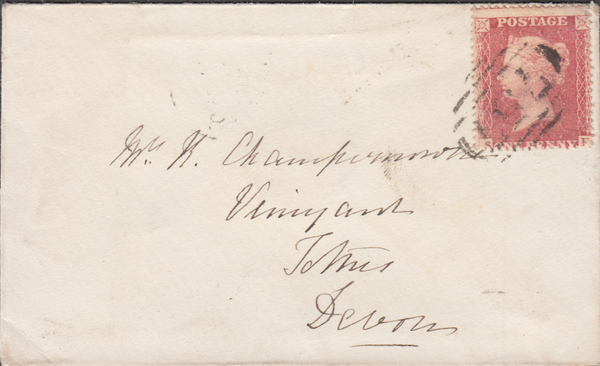 POSTAGE
Mrs H. Champernowne
Vineyard
Totnes
Devon
PENNY